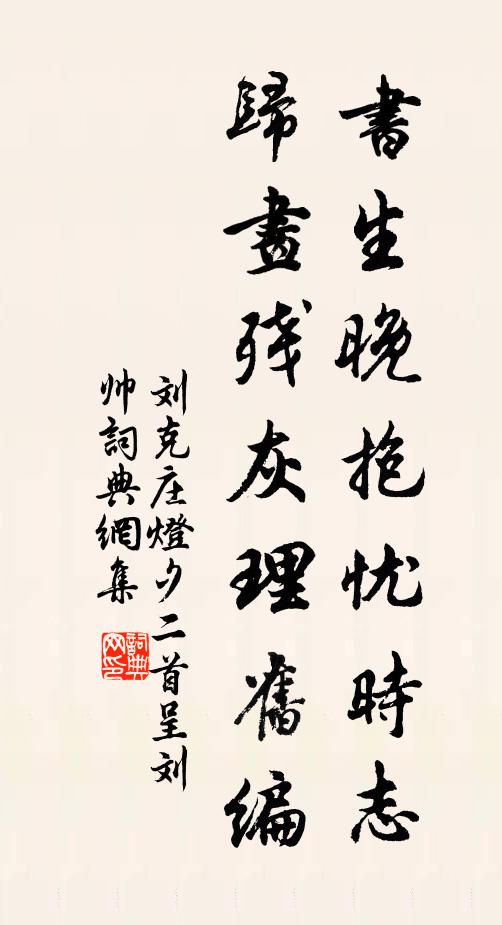 書生晚抱忧時志
歸畫残灰理舊編
刘克庄燈夕二首呈刘
帅詞典網集
詞典网印